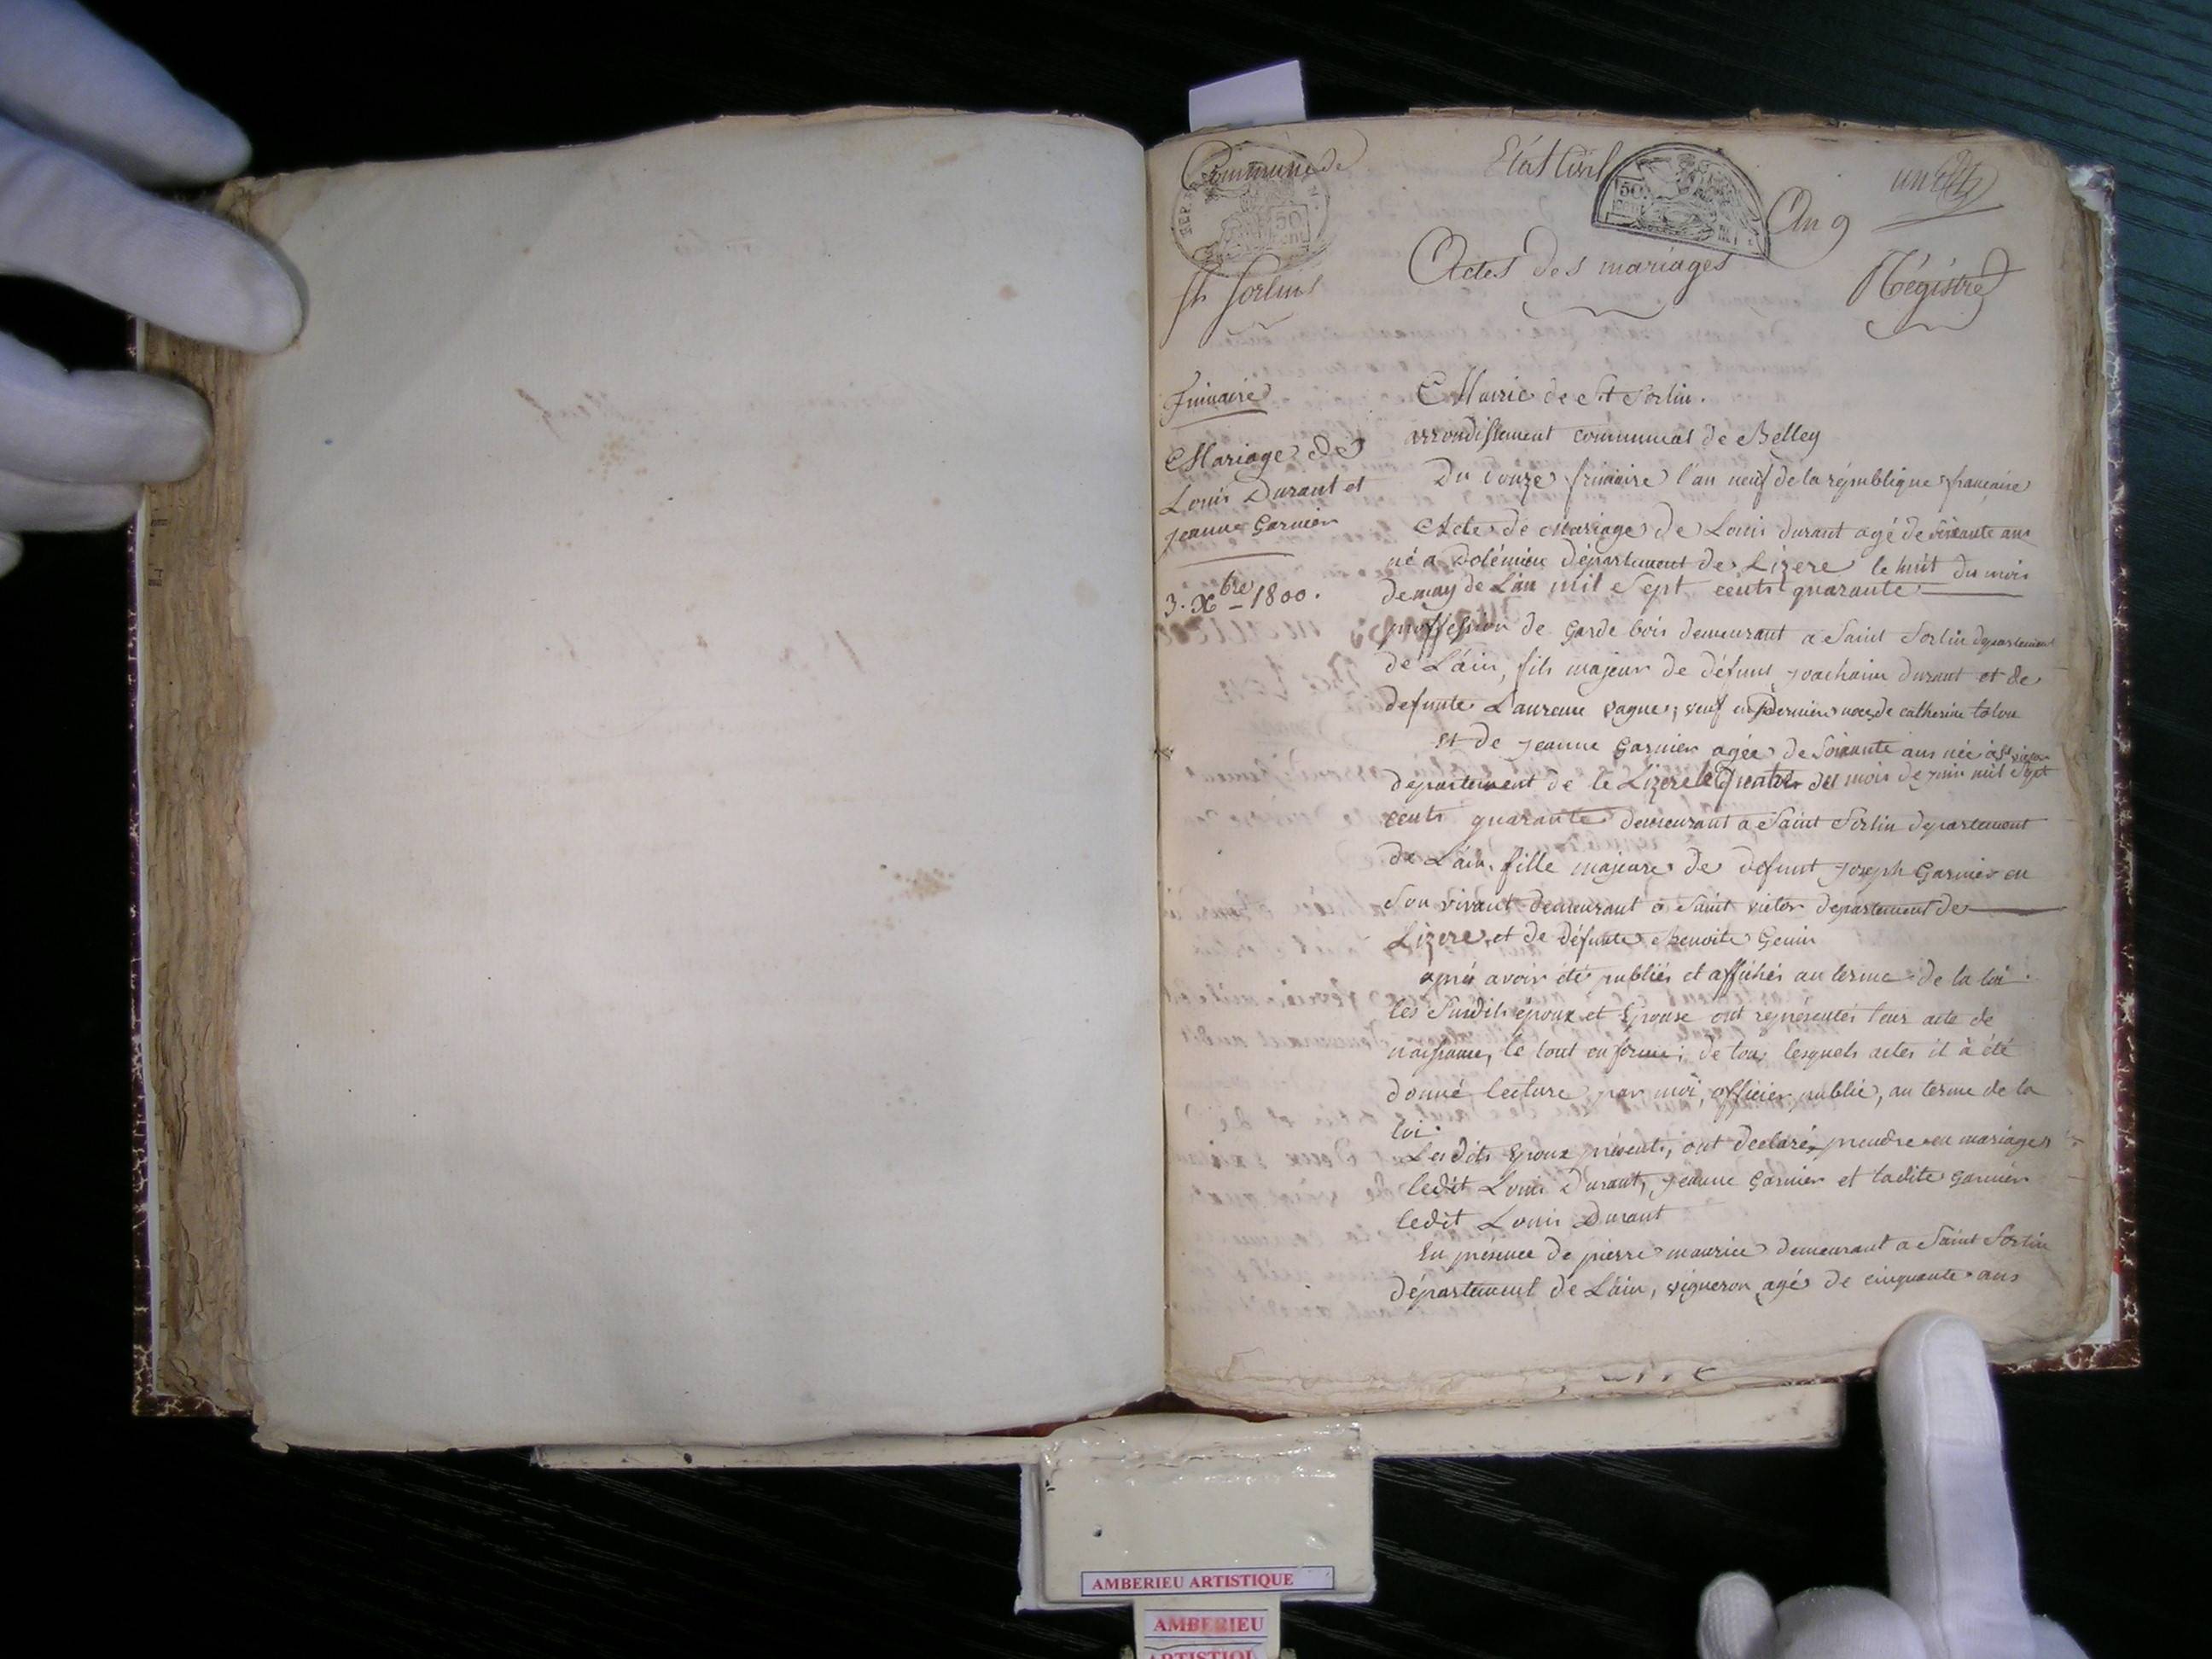 Commune de
St Sorlin
Etat Civil
An 9
Actes des mariages
Régistre
REP.
50
CENT
50
CENT
frimaire
Mariage de
Louis Durant et
jeanne Garnier
3. Xbre 1800.
Mairie de St Sorlin.
arrondissement communal de Belley
Du douze frimaire l'an neuf de la république française
Acte de Mariage de Louis durant agé de soixante ans
né a Dolémieu département de Lizere le huit du mois
de may de L'an mil sept cents quarante
proffession de Garde bois demeurant a Saint Sorlin departement
de L'áin, fils majeur de défunt joachaim durant et de
defunte Laurence vagne; veuf en dernieres noces de catherine
et de jeanne Garnier agée de Soixante ans née à St victor
departement de le Lizere le quatre du mois de juin mil sept
cents quarante demeurant a Saint Sorlin departement
de L'áin. fille majeure de défunt joseph Garnier en
son vivant demeurant a Saint victor departement de
Lizere, et de défunte Benoite Genin
aprés avoir été publiés et affichés au terme de la loi
les Susdits époux et Epouse ont représentés leur acte de
naissance, le tout en forme; de tous lesquels actes il à été
donné lecture par moi, officier public, au terme de la
loi.
Lesdits Epoux présents, ont declaré prendre en mariage
ledit Louis Durant, jeanne Garnier et ladite Garnier
ledit Louis Durant
En presence de pierre maurice demeurant a Saint Sorlin
département de L'áin, vigneron agé de cinquante ans
AMBERIEU ARTISTIQUE
AMBERIEU
ARTISTIQUE